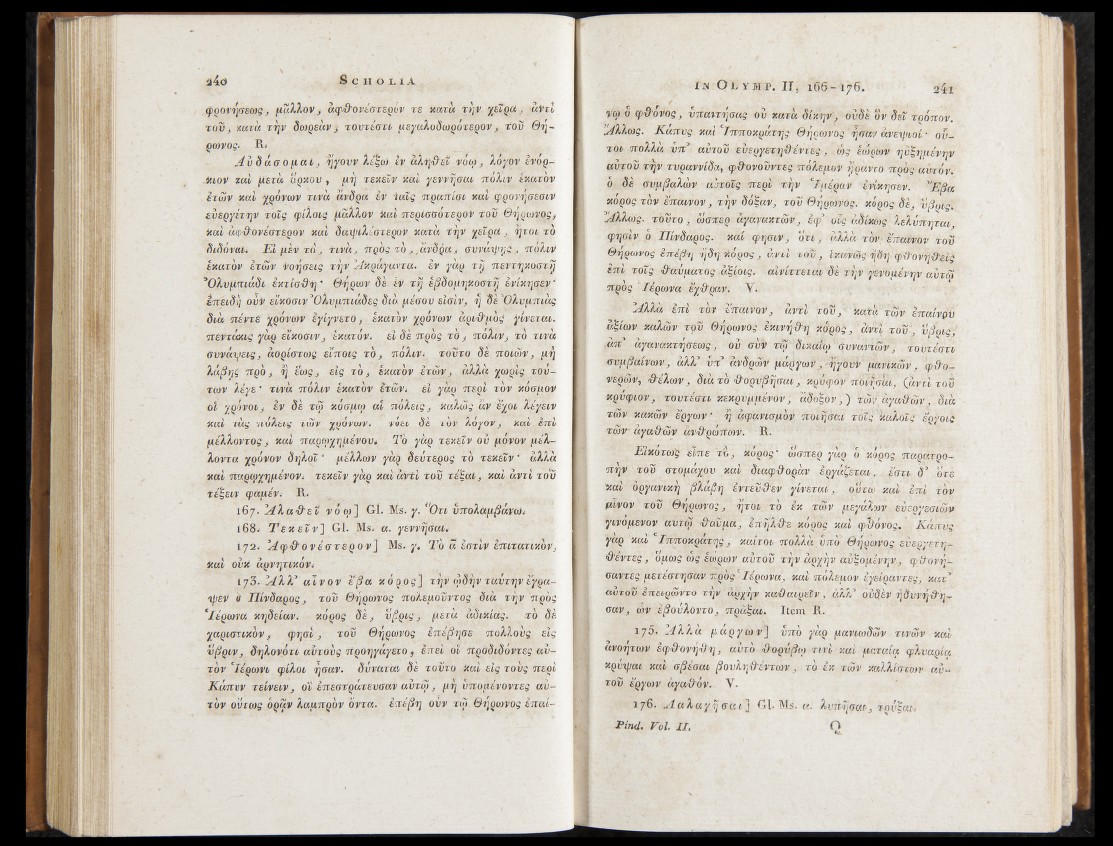 240 SCHOLIA
φρονήσεως, μᾶλλον, ἀφθονέστερόν τε κατὰ τὴν χεῖρα, ἀντὶ
τοῦ, κατὰ τὴν δωρεὰν, τουτέστι μεγαλοδωρότερον, τοῦ Θή-
ρωνος. R.
Αὐδάσομαι, ἤγουν λέξω ἐν ἀληθεῖ νόῳ, λόγον ἐνόρ-
κιον καὶ μετὰ ὅρκου, μὴ τεκεῖν καὶ γεννῆσαι πόλιν ἑκατὸν
ἐτῶν καὶ χρόνων τινὰ ἄνδρα ἐν ταῖς πραπίσι καὶ φρονήσεσιν
εὐεργέτην τοῖς φίλοις μᾶλλον καὶ περισσότερον τοῦ Θήρωνος,
καὶ ἀφθονέστερον καὶ δαψιλέστερον κατὰ τὴν χεῖρα, ἤτοι τὸ
διδόναι. Εἰ μὲν τὸ, τινὰ, πρὸς τὸ, ἄνδρα, συνάψῃς, πόλιν
ἑκατὸν ἐτῶν νοήσεις τὴν Ἀκράγαντα. ἐν γὰρ τῇ πεντηκοστῇ
Ὀλυμπιάδι ἐκτίσθη· Θήρων δὲ ἐν τῇ ἑβδομηκοστῇ ἐνίκησεν·
ἐπειδὴ οὖν εἴκοσιν Ὀλυμπιάδες διὰ μέσου εἰσὶν, ἡ δὲ Ὀλυμπιὰς
διὰ πέντε χρόνων ἐγίγνετο, ἑκατὸν χρόνων ἀριθμὸς γίνεται.
πεντάκις γὰρ εἴκοσιν, ἑκατόν. εἰ δὲ πρὸς τὸ, πόλιν, τὸ τινὰ
συνάψεις, ἀορίστως εἴποις τὸ, πόλιν. τοῦτο δὲ ποιῶν, μὴ
λάβῃς πρὸ, ἢ ἕως, εἰς τὸ, ἑκατὸν ἐτῶν, ἀλλὰ χωρὶς τού-
των λέγε· τινὰ πόλιν ἑκατὸν ἐτῶν. εἰ γὰρ περὶ τὸν κόσμον
οἱ χρόνοι, ἐν δὲ τῷ κόσμῳ αἱ πόλεις, καλῶς ἂν ἔχοι λέγειν
καὶ τὰς πόλεις τῶν χρόνων. νόει δὲ τὸν λόγον, καὶ ἐπὶ
μέλλοντος, καὶ παρῳχημένου. Τὸ γὰρ τεκεῖν οὐ μόνον μέλ-
λοντα χρόνον δηλοῖ· μέλλων γὰρ δεύτερος τὸ τεκεῖν· ἀλλὰ
καὶ παρῳχημένον. τεκεῖν γὰρ καὶ ἀντὶ τοῦ τέξαι, καὶ ἀντὶ τοῦ
τέξειν φαμέν. R.
167. Ἀλαθεῖ νόῳ] Gl. Ms. γ. Ὅτι ὑπολαμβάνω.
168. Τεκεῖν] Gl. Ms. α. γεννῆσαι.
172. Ἀφθονέστερον] Ms. γ. Τὸ ᾱ ἐστὶν ἐπιτατικὸν,
καὶ οὐκ ἀρνητικόν.
173. Ἀλλ' αἶνον ἔβα κόρος] τὴν ᾠδὴν ταύτην ἔγρα-
ψεν ὁ Πίνδαρος, τοῦ Θήρωνος πολεμοῦντος διὰ τὴν πρὸς
Ἱέρωνα κηδείαν. κόρος δὲ, ὕβρις, μετὰ ἀδικίας. τὸ δὲ
χαριστικὸν, φησὶ, τοῦ Θήρωνος ἐπέβησε πολλοὺς εἰς
ὕβριν, δηλονότι αὐτοὺς προηγάγετο, ἐπεὶ οἱ προδιδόντες αὐ-
τὸν Ἱέρωνι φίλοι ἦσαν. δύναται δὲ τοῦτο καὶ εἰς τοὺς περὶ
Κάπυν τείνειν, οἳ ἐπεστράτευσαν αὐτῷ, μὴ ὑπομένοντες αὐ-
τὸν οὕτως ὁρᾷν λαμπρὸν ὄντα. ἐπέβη οὖν τῷ Θήρωνος ἐπαί-
IN OLYMP. II, 166-176. 241
νῳ ὁ φθόνος, ὑπαντήσας οὐ κατὰ δίκην, οὐδὲ ὃν δεῖ τρόπον.
Ἄλλως. Κάπυς καὶ Ἱπποκράτης Θήρωνος ἦσαν ἀνεψιοί· οὗ-
τοι πολλὰ ὑπ' αὐτοῦ εὐεργετηθέντες, ὡς ἑώρων ηὐξημένην
αὐτοῦ τὴν τυραννίδα, φθονοῦντες πόλεμον ἤραντο πρὸς αὐτόν.
ὁ δὲ συμβαλὼν αὐτοῖς περὶ τὴν Ἱμέραν ἐνίκησεν. Ἔβα
κόρος τὸν ἔπαινον, τὴν δόξαν, τοῦ Θήρωνος. κόρος δὲ, ὕβρις.
Ἄλλως. τοῦτο, ὥσπερ ἀγανακτῶν, ἐφ' οἷς ἀδίκως λελύπηται,
φησὶν ὁ Πίνδαρος. καί φησιν, ὅτι, ἀλλὰ τὸν ἔπαινον τοῦ
Θήρωνος ἐπέβη ἤδη κόρος, ἀντὶ τοῦ, ἱκανῶς ἤδη φθονηθεὶς
ἐπὶ τοῖς θαύματος ἀξίοις. αἰνίττεται δὲ τὴν γενομένην αὐτῷ
πρὸς Ἱέρωνα ἔχθραν. V.
Ἀλλὰ ἐπὶ τὸν ἔπαινον, ἀντὶ τοῦ, κατὰ τῶν ἐπαίνου
ἀξίων καλῶν τοῦ Θήρωνος ἐκινήθη κόρος, ἀντὶ τοῦ, ὕβρις,
ἀπ' ἀγανακτήσεως, οὐ σὺν τῷ δικαίῳ συναντῶν, τουτέστι
συμβαίνων, ἀλλ' ὑπ' ἀνδρῶν μάργων, ἤγουν μανικῶν, φθο-
νερῶν, θέλων, διὰ τὸ θορυβῆσαι, κρύφον ποιῆσαι, (ἀντὶ τοῦ
κρύφιον, τουτέστι κεκρυμμένον, ἄδοξον,) τῶν ἀγαθῶν, διὰ
τῶν κακῶν ἔργων· ἢ ἀφανισμὸν ποιῆσαι τοῖς καλοῖς ἔργοις
τῶν ἀγαθῶν ἀνθρώπων. R.
Εἰκότως εἶπε τὸ, κόρος· ὥσπερ γὰρ ὁ κόρος παρατρο-
πὴν τοῦ στομάχου καὶ διαφθορὰν ἐργάζεται. ἔστι δ' ὅτε
καὶ ὀργανικὴ βλάβη ἐντεῦθεν γίνεται, οὕτω καὶ ἐπὶ τὸν
αἶνον τοῦ Θήρωνος, ἤτοι τὸ ἐκ τῶν μεγάλων εὐεργεσιῶν
γινόμενον αὐτῷ θαῦμα, ἐπῆλθε κόρος καὶ φθόνος. Κάπυς
γὰρ καὶ Ἱπποκράτης, καίτοι πολλὰ ὑπὸ Θήρωνος εὐεργετη-
θέντες, ὅμως ὡς ἑώρων αὐτοῦ τὴν ἀρχὴν αὐξομένην, φθονή-
σαντες μετέστησαν πρὸς Ἱέρωνα, καὶ πόλεμον ἐγείραντες, κατ'
αὐτοῦ ἐπειρῶντο τὴν ἀρχὴν καθαιρεῖν, ἀλλ' οὐδὲν ἠδυνήθη-
σαν, ὧν ἐβούλοντο, πρᾶξαι. Item R.
175. Ἀλλὰ μάργων] ὑπὸ γὰρ μανιωδῶν τινῶν καὶ
ἀνοήτων ἐφθονήθη, αὐτὸ θορύβῳ τινὶ καὶ ματαίᾳ φλυαρίᾳ
κρύψαι καὶ σβέσαι βουληθέντων, τὸ ἐκ τῶν καλλίστων αὐ-
τοῦ ἔργων ἀγαθόν. V.
176. Λαλαγῆσαι] Gl. Ms. α. λυπῆσαι, τρύξαι.
Pind. Vol. II. Q